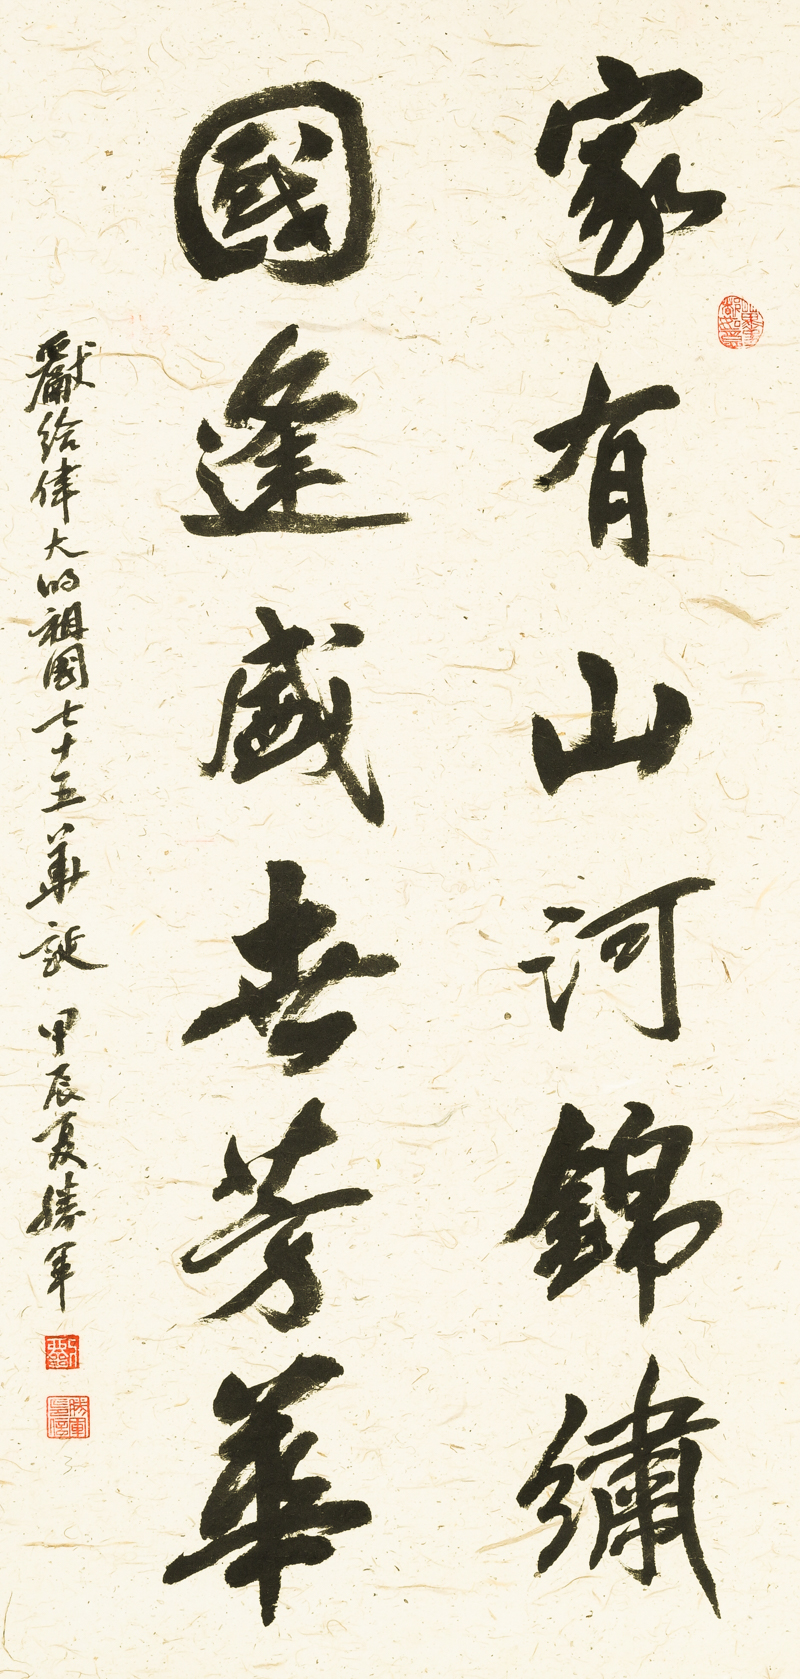 家有山河錦繡
國逢盛世芳華
獻给偉大的祖国七十五華誕 甲辰夏勝军
劉